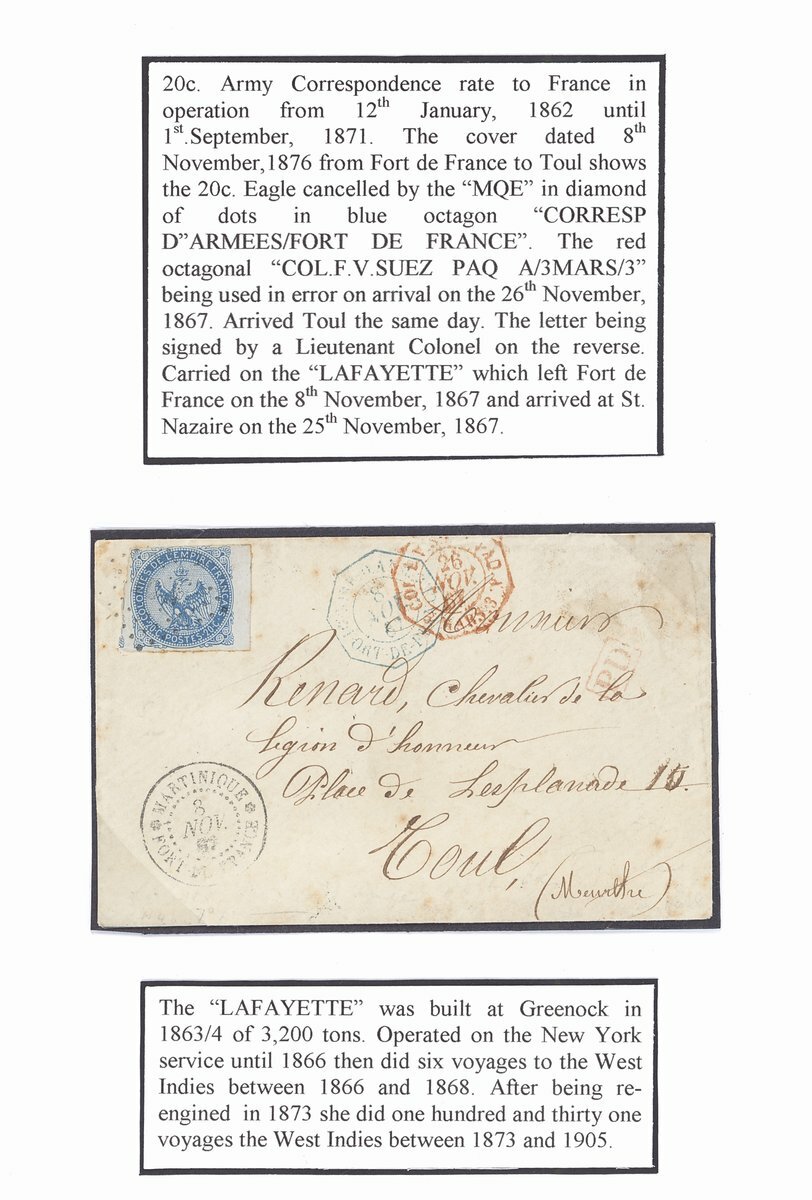 20c. Army Correspondence rate to France in
operation from 12th January, 1862 until
1st.September, 1871. The cover dated 8th
November,1876 from Fort de France to Toul shows
the 20c. Eagle cancelled by the “MQE” in diamond
of dots in blue octagon “CORRESP
D”ARMEES/FORT DE FRANCE”. The red
octagonal “COL.F.V.SUEZ PAQ A/3MARS/3”
being used in error on arrival on the 26th November,
1867. Arrived Toul the same day. The letter being
signed by a Lieutenant Colonel on the reverse.
Carried on the “LAFAYETTE” which left Fort de
France on the 8th November, 1867 and arrived at St.
Nazaire on the 25th November, 1867.
COLONIES DE L'EMPIRE FRANÇAIS
POSTES
8
NOV
FORT-DE-F
COL
26
NOV.
67
PD
Monsieur
Renard, Chevalier de la
légion d'honneur
Place de Lesplanade 15.
Toul,
(Meurthe)
MARTINIQUE
8
NOV.
67
FORT DE FRANCE
The “LAFAYETTE” was built at Greenock in
1863/4 of 3,200 tons. Operated on the New York
service until 1866 then did six voyages to the West
Indies between 1866 and 1868. After being re-
engined in 1873 she did one hundred and thirty one
voyages the West Indies between 1873 and 1905.